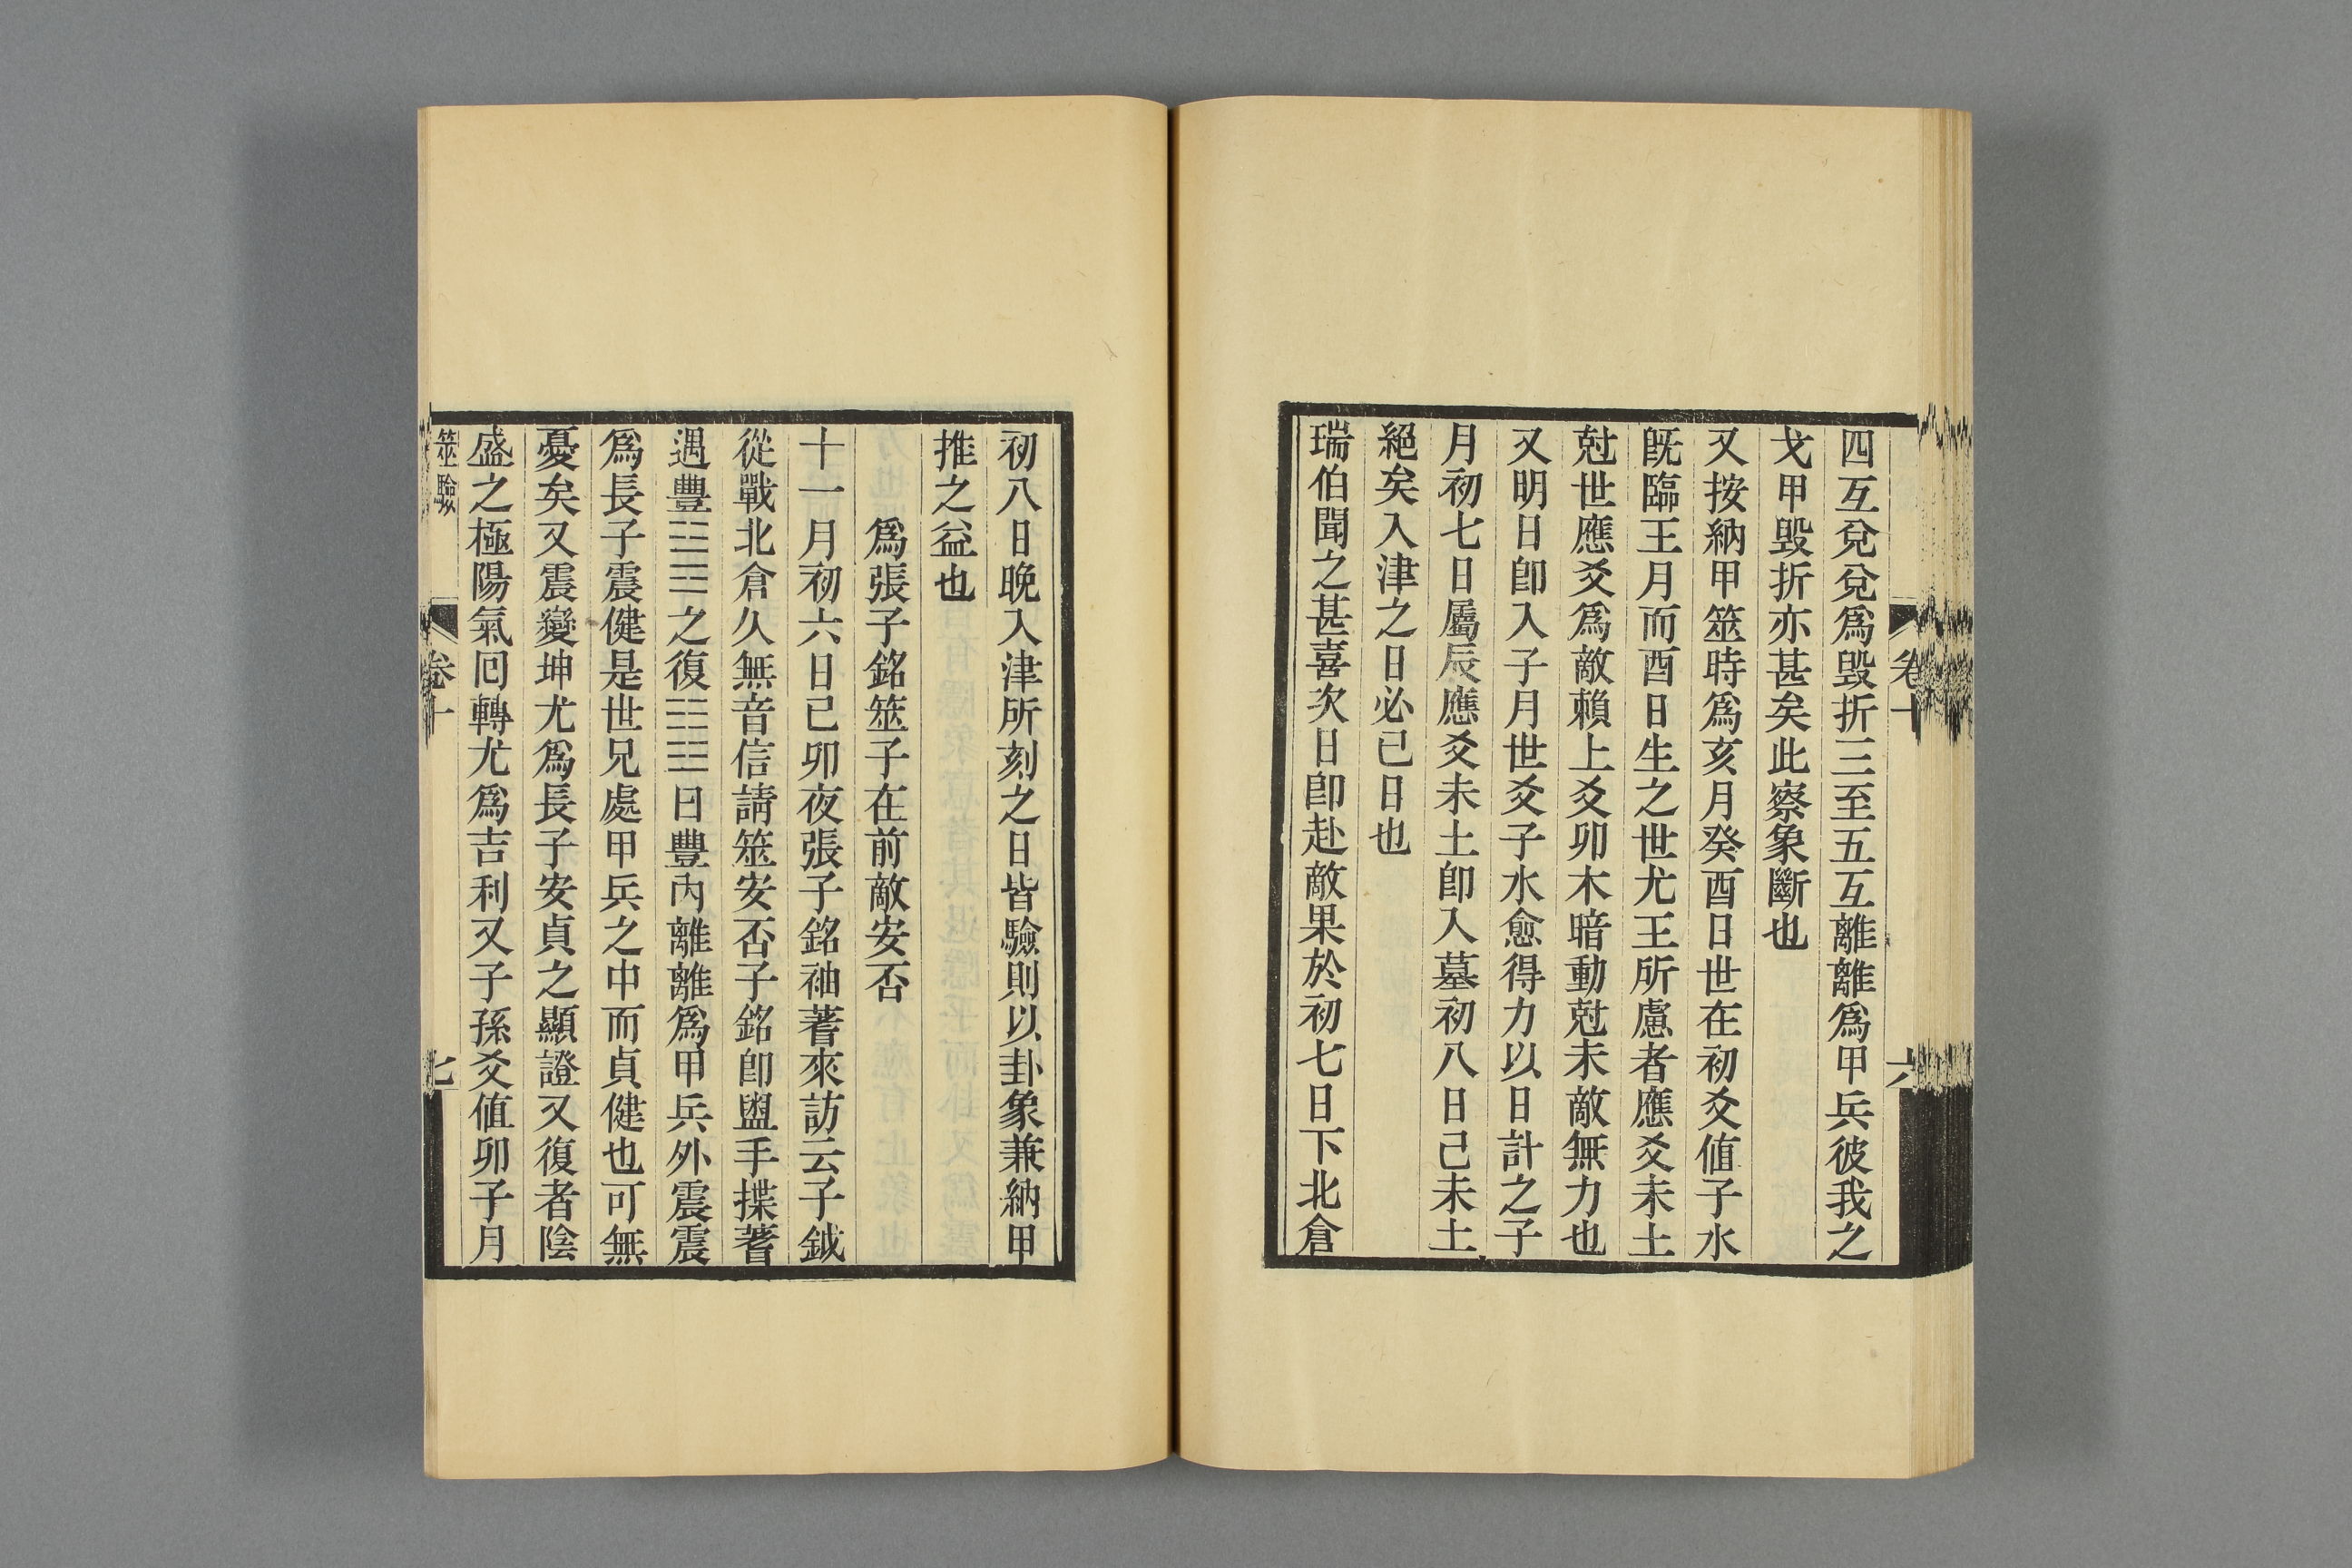 四互兌兌爲毀折三至五互離離爲甲兵彼我之
戈甲毀折亦甚矣此察象斷也
又按納甲筮時爲亥月癸酉日世在初爻値子水
旣臨王月而酉日生之世尤王所慮者應爻未土
尅世應爻爲敵賴上爻卯木暗動尅未敵無力也
又明日卽入子月世爻子水愈得力以日計之子
月初七日屬辰應爻未土卽入墓初八日己未土
絕矣入津之日必己日也
瑞伯聞之甚喜次日卽赴敵果於初七日下北倉
卷十
六
初八日晚入津所刻之日皆驗則以卦象兼納甲
推之益也
爲張子銘筮子在前敵安否
十一月初六日己卯夜張子銘袖蓍來訪云子鉞
從戰北倉久無音信請筮安否子銘卽盥手揲蓍
遇豐☳☲之復☷☳曰豐內離離爲甲兵外震震
爲長子震健是世兄處甲兵之中而貞健也可無
憂矣又震變坤尤爲長子安貞之顯證又復者陰
盛之極陽氣囘轉尤爲吉利又子孫爻値卯子月
筮驗
卷十
七